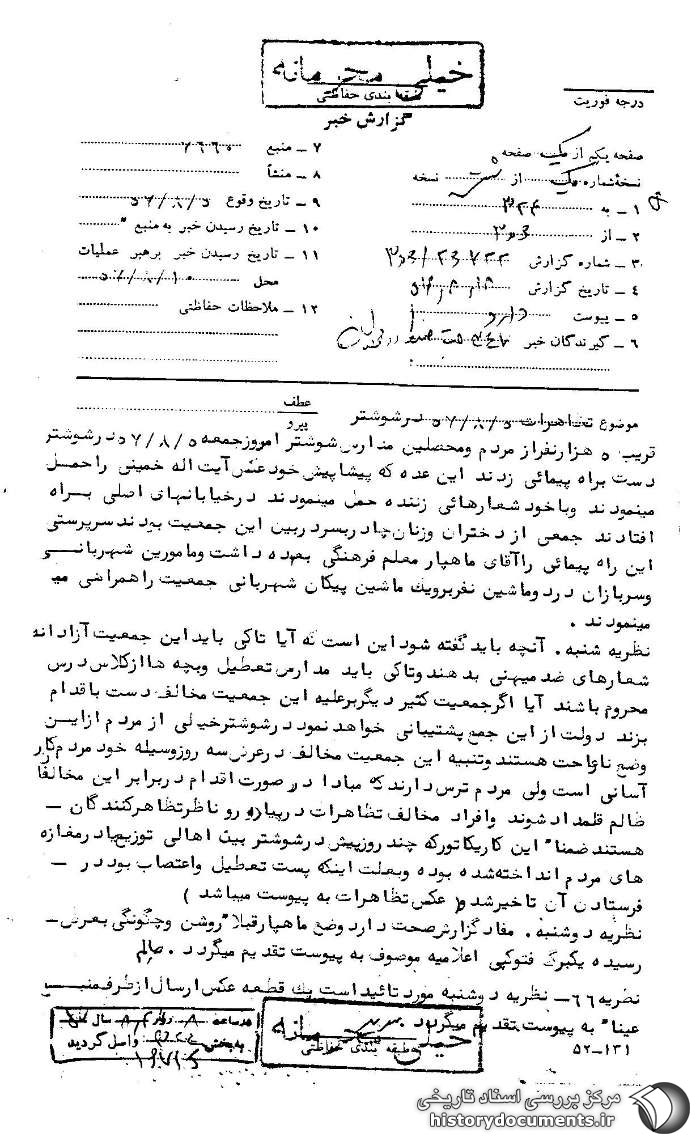 خیلی محرمانه
طبقه بندی حفاظتی
گزارش خبر
درجه فوریت
صفحه یکم از یک صفحه
نسخهٔ شماره یک از نسخه
۱ ـ به ۳۲۴
۲ ـ از
۳ـ شماره گزارش
٤ ـ تاریخ گزارش
٥ ـ پیوست دارد
٦ ـ گیرندگان خبر
۷ ـ منبع ۷۶۶۰
۸ ـ منشأ
۹ ـ تاریخ وقوع ۵۷/۸/۵
۱۰ ـ تاریخ رسیدن خبر به منبع "
۱۱ ـ تاریخ رسیدن خبر برهبر عملیات
محل ۵۷/۸/۱۰
۱۲ ـ ملاحظات حفاظتی
موضوع تظاهرات ۵۷/۸/۵ در شوشتر
عطف
پیرو
قریب ۵ هزارنفراز مردم ومحصلین مدارس شوشتر امروزجمعه ۵۷/۸/۵ درشوشتر
دست براه پیمائی زدند این عده که پیشاپیش خودعکس آیت اله خمینی راحمل
مینمودند وباخود شعارهائی زننده حمل مینمودند درخیابانهای اصلی براه
افتادند جمعی از دختران وزنان چادربسردربین این جمعیت بودند سرپرستی
این راه پیمائی راآقای ماهیار معلم فرهنگی بعهده داشت ومامورین شهربانی
وسربازان دردوماشین نفربرویك ماشین پیکان شهربانی جمعیت راهمراهی می
مینمودند .
نظریه شنبه . آنچه باید گفته شود این است که آیا تاکی باید این جمعیت آزادانه
شعارهای ضد میهنی بدهند وتاکی باید مدارس تعطیل وبچه هاازکلاس درس
محروم باشند آیا اگرجمعیت کثیر دیگربرعلیه این جمعیت مخالف دست باقدام
بزند دولت از این جمع پشتیبانی خواهد نمود درشوشترخیلی از مردم ازاین
وضع ناراحت هستند وتنبیه این جمعیت مخالف درعرض سه روزوسیله خود مردم کار
آسانی است ولی مردم ترس دارند که مبادا در صورت اقدام دربرابر این مخالفا
ظالم قلمداد شوند وافراد مخالف تظاهرات درپیاده رو ناظرتظاهرکنندگان ـ
هستند ضمنا" این کاریکاتورکه چند روزپیش درشوشتر بین اهالی توزیع ودرمغازه
های مردم انداخته شده بوده وبعلت اینکه پست تعطیل واعتصاب بود در ـ
فرستادن آن تاخیر شد ( عکس تظاهرات به پیوست میباشد )
نظریه دوشنبه . مفاد گزارش صحت دارد وضع ماهیارقبلا" روشن وچگونگی بعرض ـ
رسیده یکبرگ فتوکپی اعلامیه موصوف به پیوست تقدیم میگردد .
نظریه ٦٦ـ نظریه دوشنبه مورد تائید است یك قطعه عکس ارسال ازطرف منبع
عینا" به پیوست تقدیم میگردد
۵۲-۱۳۱
خیلی محرمانه
طبقه بندی حفاظتی
واصل گردید
مرکز بررسی اسناد تاریخی
historydocuments.ir